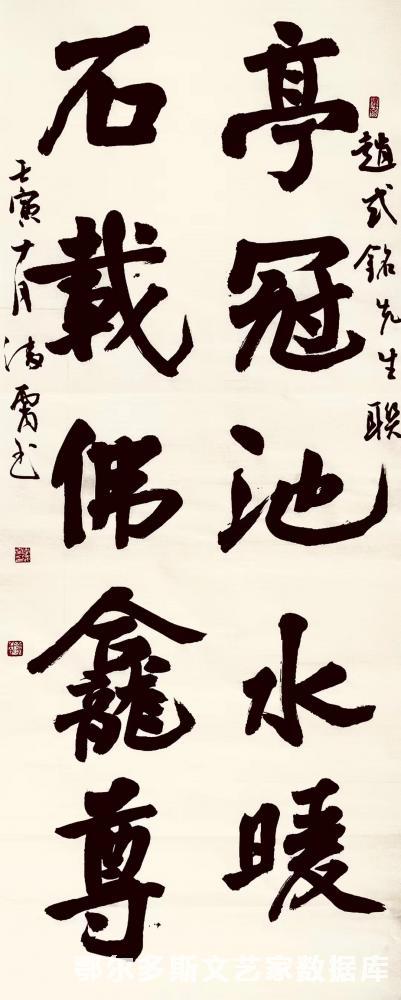 趙式銘先生联
亭冠池水暖
石載佛龕尊
壬寅十月
鄂尔多斯文艺家数据库